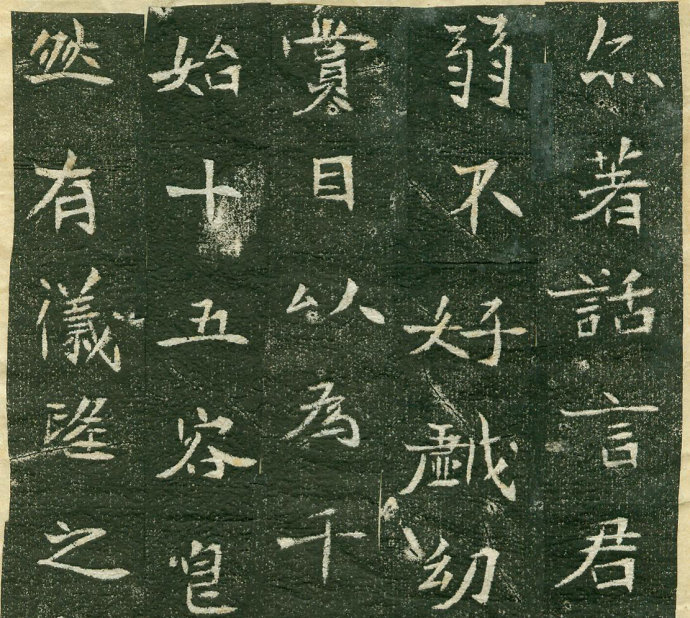 亦著話言君
弱不好戯幼
賞目以為千
始十五容皃
然有儀望之